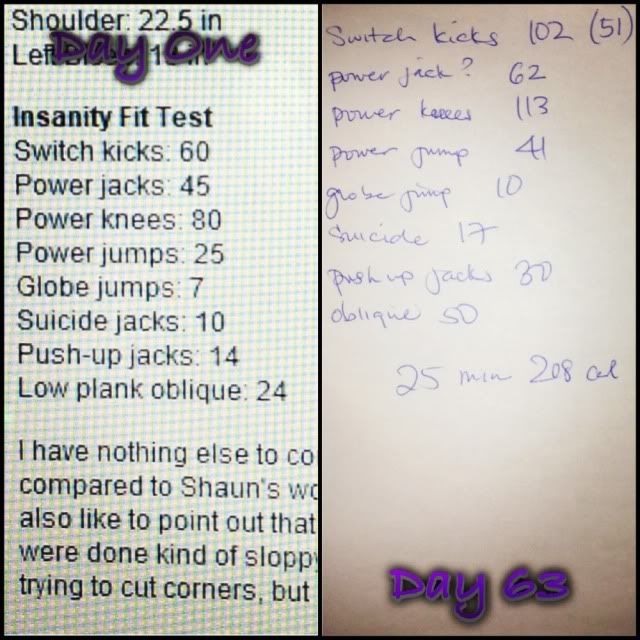 Shoulder: 22.5 in
Left
Day One
Insanity Fit Test
Switch kicks: 60
Power jacks: 45
Power knees: 80
Power jumps: 25
Globe jumps: 7
Suicide jacks: 10
Push-up jacks: 14
Low plank oblique: 24
I have nothing else to co
compared to Shaun's wo
also like to point out that
were done kind of sloppy
trying to cut corners, but
Switch kicks 102 (51)
power jack? 62
power knees 113
power jump 41
globe jump 10
Suicide 17
push up jacks 30
oblique 50
25 min 208 cal
Day 63